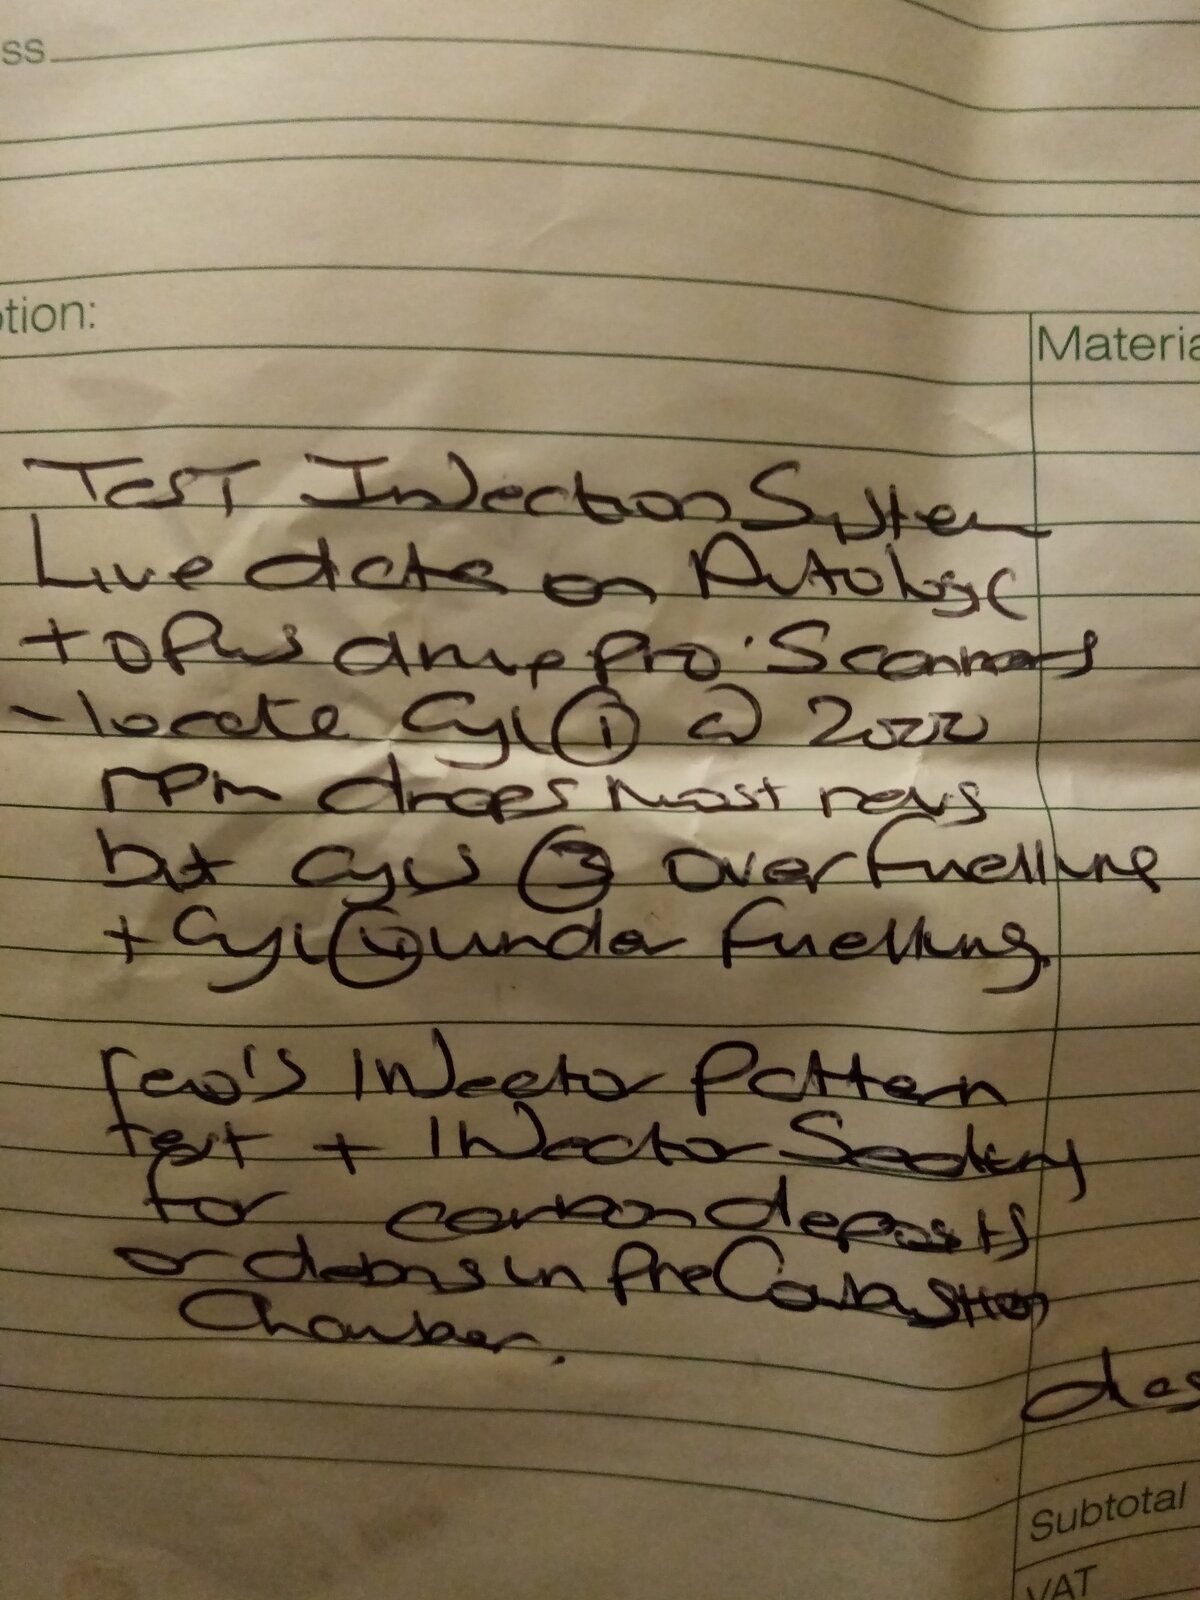 ss
tion:
Materia
Test Injection System
Live data on Autologic
+ Opus drive pro Scanners
- locate Cyl ① @ 2000
rpm drops most revs
but Cyl ③ over fuelling
+ Cyl ④ under fuelling.
req's Injector Pattern
test + Injector Sealing
for carbon deposits
or debris in pre Combustion
Chamber.
Subtotal
VAT